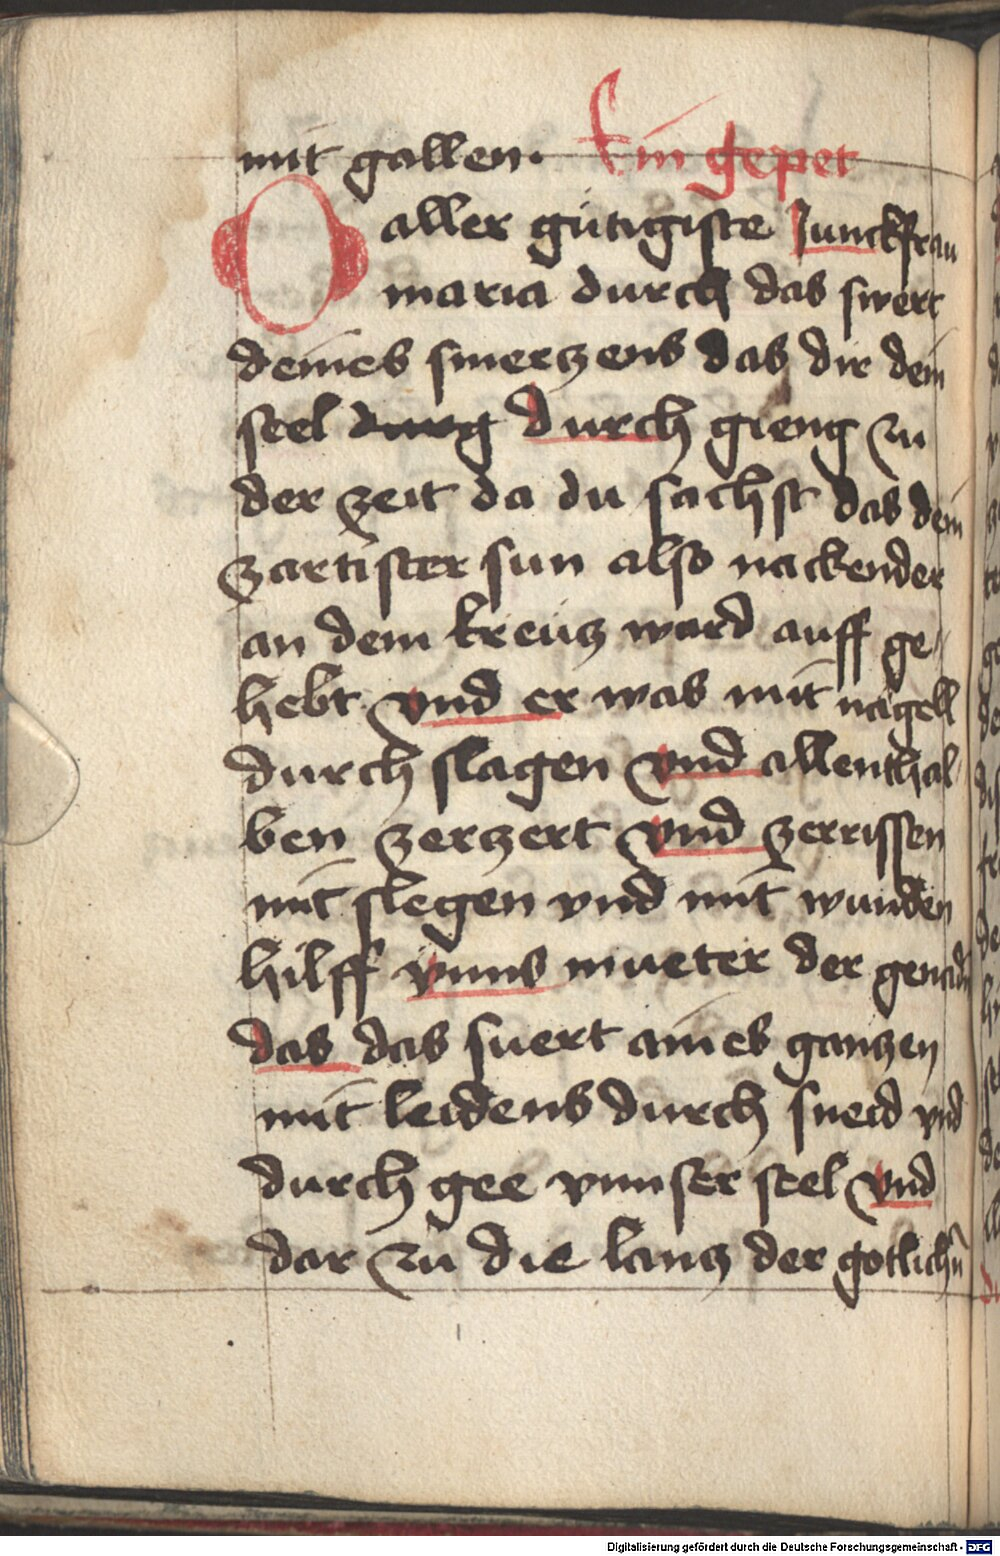 mit gallen. Ein gepet
O aller gütigiste Junckfrau
maria durch das swert
deines smerzens das dir dein
seel durg durch gieng zu
der zeit da du sachst das dein
zartister sun also nackender
an dem kreuz ward auff ge-
hebt vnd er was mit nägell
durch slagen vnd allenthal-
ben zerzert vnd zerrissen
mit slegen vnd mit wunden
hilff vnns mueter der genadn
das das suert aines ganzen
mit leidens durch sneid vnd
durch gee vnnser seel vnd
dar zu die lanz der gotlichn
Digitalisierung gefördert durch die Deutsche Forschungsgemeinschaft - DFG